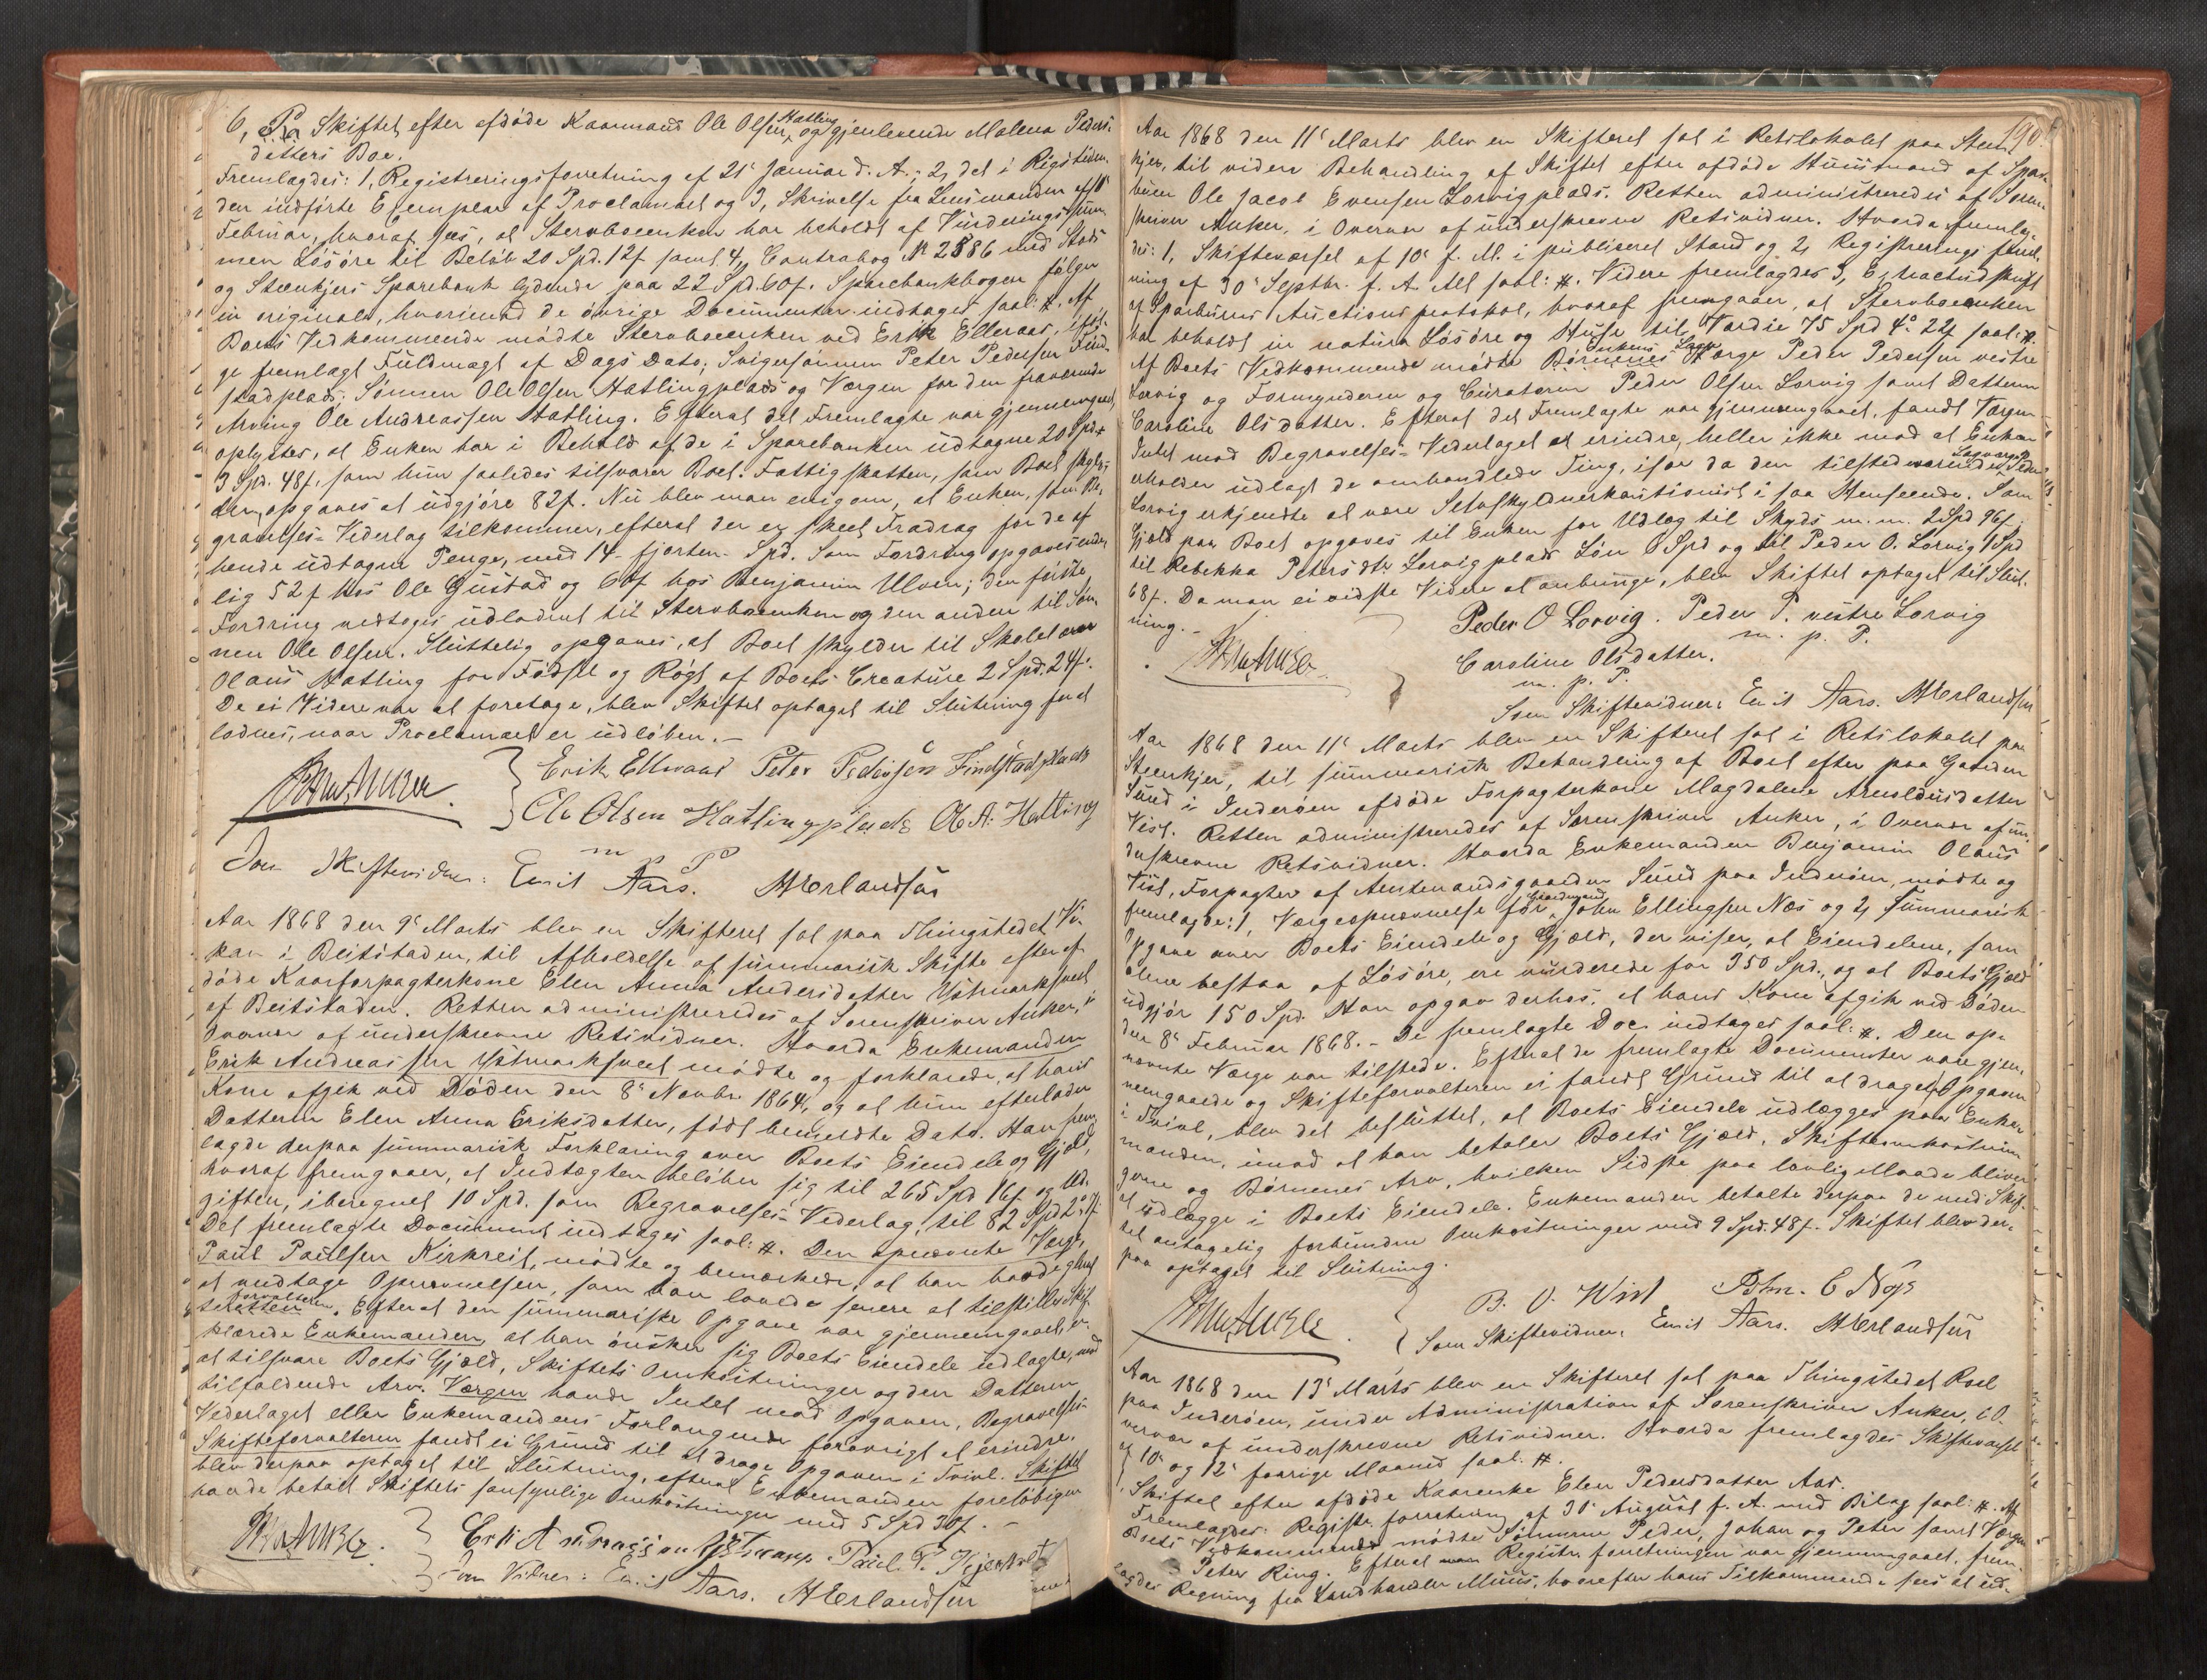 6, Paa Skiftet efter afdøde Kaarmand Ole Olsen Hatling og gjenlevende Malena Peders-
datters Boe.
Fremlagdes: 1, Registreringsforretning af 21de Januar d. A.; 2, det i Rigstiden-
den indførte Exemplar af Proclamaet og 3, Skrivelse fra Lensmanden af 10de
Februar, hvoraf sees, at Stervboeenken har beholdt af Vurderingssum-
men Løsøre til Beløb 20 Spd. 12 f samt 4, Contrabog No 2886 med Stods
og Steenkjers Sparebank lydende paa 22 Spd. 60 f. Sparebankbogen følger
in originale, hvorimod de øvrige Documenter indtages saal: #. Af
Boets Vedkommende mødte Stervboeenken ved Erik Ellevaas, iføl-
ge fremlagt Fuldmagt af Dags Dato; Svigersønnen Peter Pedersen Find-
stadplads; Sønnen Ole Olsen Hatlingplads og Værgen for den fraværende
Arving Ole Andreassen Hatling. Efterat det Fremlagte var gjennemgaaet,
oplystes, at Enken har i Behold af de i Sparebanken udtagne 20 Spd.
3 Spd. 48 f, som hun saaledes tilsvarer Boet. Fattigskatten, som Boet skyld-
er, opgaves at udgjøre 82 f. Nu blev man enig om, at Enken, som Be-
gravelses-Vederlag tilkommer, efterat der er skeet Fradrag for de af
hende udtagne Penge, med 14 - fjorten - Spd. Som Fordring opgaves ende-
lig 52 f hos Ole Gustad og 60 f hos Benjamin Ulven; den første
Fordring vedtoges udlodnet til Stervboeenken og den anden til Søn-
nen Ole Olsen. Sluttelig opgaves, at Boet skylder til Skolelærer
Olaus Hatling for Fødsel og Røgt af Boets Creature 2 Spd. 24 f.
Da ei Videre var at foretage, blev Skiftet optaget til Slutning for at
lodnes, naar Proclamaet er udløben. -
Erik Ellevaas Peter Pedersen Findstadplads
Ole Olsen Hatlingplads O. A. Hatling
m P P
Som Skiftevidner: Emil Aars. A Erlandsen
Aar 1868 den 9de Marts blev en Skifteret sat paa Thingstedet Vi-
kan i Beitstaden, til Afholdelse af summarisk Skifte efter af-
døde Kaarforpagterkone Elen Anna Andersdatter Ystmarksveet
af Beitstaden. Retten administreredes af Sorenskriver Anker, i
Overvær af underskrevne Retsvidner. Hvorda Enkemanden
Erik Andreassen Ystmarksveet mødte og forklarede, at hans
Kone afgik ved Døden den 8de Novbr. 1864, og at hun efterlader
Datteren Elen Anna Eriksdatter, født bemeldte Dato. Han frem-
lagde derpaa summarisk Forklaring over Boets Eiendele og Gjæld,
hvoraf fremgaaer, at Indtægten beløber sig til 265 Spd 16 f. og Ud-
giften, iberegnet 10 Spd. som Begravelses-Vederlag, til 82 Spd 2 o
Det fremlagte Document indtages saal: #. Den opnævnte Værge,
Paul Paulsen Kirkreit, mødte og bemærkede, at han havde glemt
at medtage Opnævnelsen, som han lovede senere at tilstille Skif-
teretten forvalteren. Efterat den summariske Opgave var gjennemgaaet, er-
klærede Enkemanden, at han ønsker sig Boets Eiendele udlagte, mod
at tilsvare Boets Gjæld, Skiftets Omkostninger og den Datteren
tilfaldende Arv. Værgen havde Intet mod Opgaven, Begravelses-
Vederlaget eller Enkemandens Forlangende forøvrigt at erindre.
Skifteforvalteren fandt ei Grund til at drage Opgaven i Tvivl. Skiftet
blev derpaa optaget til Slutning, efterat Enkemanden foreløbigen
havde betalt Skiftets sansynlige Omkostninger med 5 Spd 30 f. -
Erik Andreassen Ystmark Paul P.
Som Vidner: Emil Aars. A Erlandsen
190.
Aar 1868 den 11te Marts blev en Skifteret sat i Retslokalet paa Steen-
kjer, til videre Behandling af Skiftet efter afdøde Huusmand af Spar-
buen Ole Jacob Evensen Lorvigplads. Retten administreredes af Soren-
skriver Anker, i Overvær af underskrevne Retsvidner. Hvorda fremlag-
des: 1, Skiftevarsel af 10de f. M. i publiceret Stand og 2, Registreringsforret-
ning af 30te Septbr. f. A. Alt saal: #. Videre fremlagdes 3, Extractudskrift
af Sparbuens Auctionsprotokol, hvoraf fremgaaer, at Stervboeenken
har beholdt in natura Løsøre og Huse til Værdie 75 Spd 4 o 22 f saal: #.
Af Boets Vedkommende mødte Børnenes Enkens Laug Værge Peder Pedersen vestre
Lorvig og Formynderen og Curatoren Peder Olsen Lorvig samt Datteren
Caroline Olsdatter. Efterat det Fremlagte var gjennemgaaet, fandt Værgen
Intet mod Begravelses-Vederlaget at erindre, heller ikke mod at Enken
erholder udlagt de omhandlede Ting, især da den tilstedeværende Laugværge Peder
Lorvig erkjendte at være Selvskyldnerkautionist i saa Henseende. Som
Gjæld paa Boet opgaves til Enken for Udlæg til Skyds m. m. 2 Spd 96 f,
til Rebekka Petersdtr Lorvigplads Løn 6 Spd og til Peder O. Lorvig 1 Spd
68 f. Da man ei vidste Videre at anbringe, blev Skiftet optaget til Slut-
ning. -
Peder O Lorvig. Peder P. vestre Lorvig
m. p. P.
Caroline Olsdatter.
m. p. P.
Som Skiftevidner: Emil Aars. A Erlandsen
Aar 1868 den 11te Marts blev en Skifteret sat i Retslokalet paa
Steenkjer, til summarisk Behandling af Boet efter paa Gaarden
Sund i Inderøen afdøde Forpagterkone Magdalene Arnoldusdatter
Vist. Retten administreredes af Sorenskriver Anker, i Overvær af un-
derskrevne Retsvidner. Hvorda Enkemanden Benjamin Olaus
Vist, Forpagter af Amtmandsgaarden Sund paa Inderøen, mødte og
fremlagde: 1, Værgeopnævnelse for Gaardmand John Ellingsen Næs og 2, Summarisk
Opgave over Boets Eiendele og Gjæld, der viser, at Eiendelene, som
alene bestaa af Løsøre, ere vurderede for 350 Spd., og at Boets Gjæld
udgjør 150 Spd. Han opgav derhos, at hans Kone afgik ved Døden
den 8de Februar 1868. - De fremlagte Doc. indtages saal: #. Den op-
nævnte Værge var tilstede. Efterat de fremlagte Documenter vare gjen-
nemgaaede og Skifteforvalteren ei fandt Grund til at drage Opgaven
i Tvivl, blev det besluttet, at Boets Eiendele udlægges paa Enke-
manden, imod at han betaler Boets Gjæld, Skifteomkostnin-
gerne og Børnenes Arv, hvilken Sidste paa lovlig Maade bliver
at udlægge i Boets Eiendele. Enkemanden betalte derpaa de med Skif-
tet antagelig forbundne Omkostninger med 9 Spd. 48 f. Skiftet blev der-
paa optaget til Slutning.
B. O. Wist John. E Næs
Som Skiftevidner: Emil Aars. A Erlandsen
Aar 1868 den 13de Marts blev en Skifteret sat paa Thingstedet Roel
paa Inderøen, under Administration af Sorenskriver Anker, i O-
vervær af underskrevne Retsvidner. Hvorda fremlagdes Skiftevarsel
af 10de og 12te forrige Maaned saal: #.
1, Skiftet efter afdøde Kaarenke Elen Pedersdatter Aas.
Fremlagdes: Registr. forretning af 30te August f. A. med Bilag saal: #. Af
Boets Vedkommende mødte Sønnerne Peder, Johan og Peter samt Værgen
Peter Ring. Efterat Registr. forretningen var gjennemgaaet, frem-
lagdes Regning fra Landhandler Muus, hvorefter hans Tilkommende sees at ud-